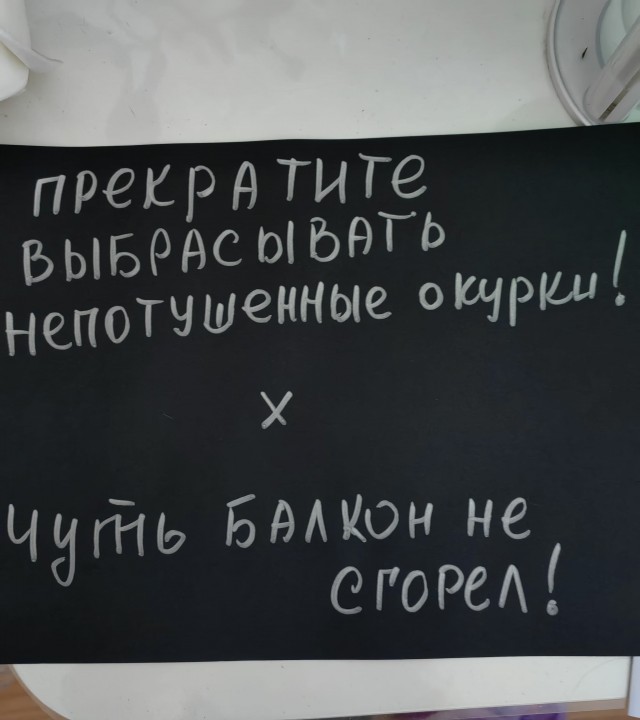 ПРЕКРАТИТЕ
ВЫБРАСЫВАТЬ
НЕПОТУШЕННЫЕ ОКУРКИ!
X
ЧУТЬ БАЛКОН НЕ
СГОРЕЛ!